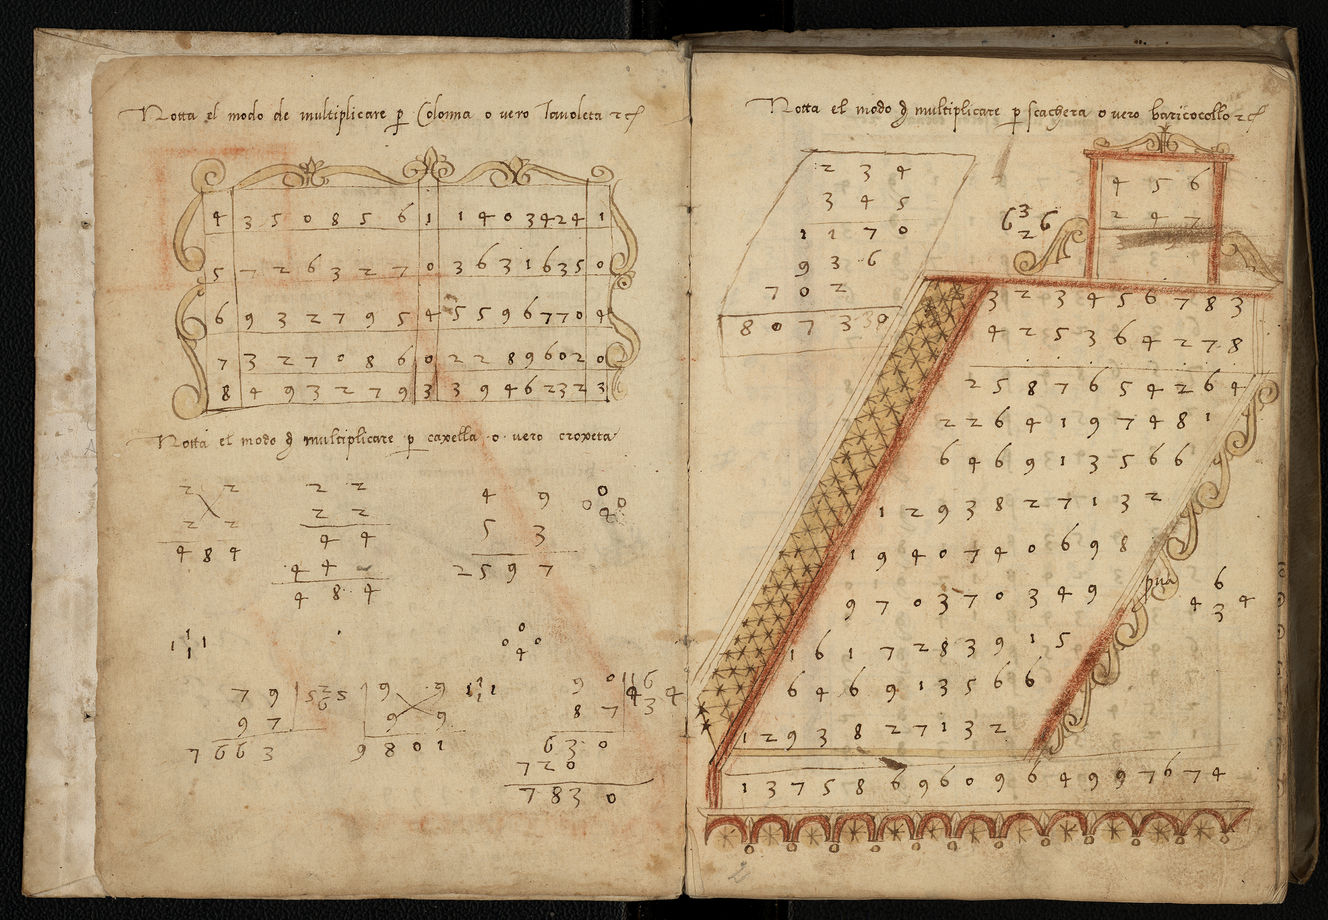 Notta el modo de multiplicare p Colonna o vero Tavoleta
4 3 5 0 8 5 6 1 1 4 0 3 4 2 4 1
5 7 2 6 3 2 7 0 3 6 3 1 6 3 5 0
6 9 3 2 7 9 5 4 5 5 9 6 7 7 0 4
7 3 2 7 0 8 6 0 2 2 8 9 6 0 2 0
8 4 9 3 2 7 9 3 3 9 4 6 2 3 2 3
Notta el modo d multiplicare p caxella o vero croxeta
2 2
2 2
4 8 4
2 2
2 2
4 4
4 4
4 8 4
4 9
5 3
2 5 9 7
0
0 0
4
1
1 1
1
7 9
9 7
7 6 6 3
5 2 5
6
9 9
9 9
9 8 0 1
1
1 1
1
0
0 0
4
9 0
8 7
6 3 0
7 2 0
7 8 3 0
6
4 4
3
Notta el modo d multiplicare p scachera o vero baricocollo
2 3 4
3 4 5
1 1 7 0
9 3 6
7 0 2
8 0 7 3 3 0
3
6 6
2
4 5 6
2 4 7
3 2 3 4 5 6 7 8 3
4 2 5 3 6 4 2 7 8
2 5 8 7 6 5 4 2 6 4
2 2 6 4 1 9 7 4 8 1
6 4 6 9 1 3 5 6 6
1 2 9 3 8 2 7 1 3 2
1 9 4 0 7 4 0 6 9 8
9 7 0 3 7 0 3 4 9
1 6 1 7 2 8 3 9 1 5
6 4 6 9 1 3 5 6 6
1 2 9 3 8 2 7 1 3 2
1 3 7 5 8 6 9 6 0 9 6 4 9 9 7 6 7 4
pua
6
4 4
3
2